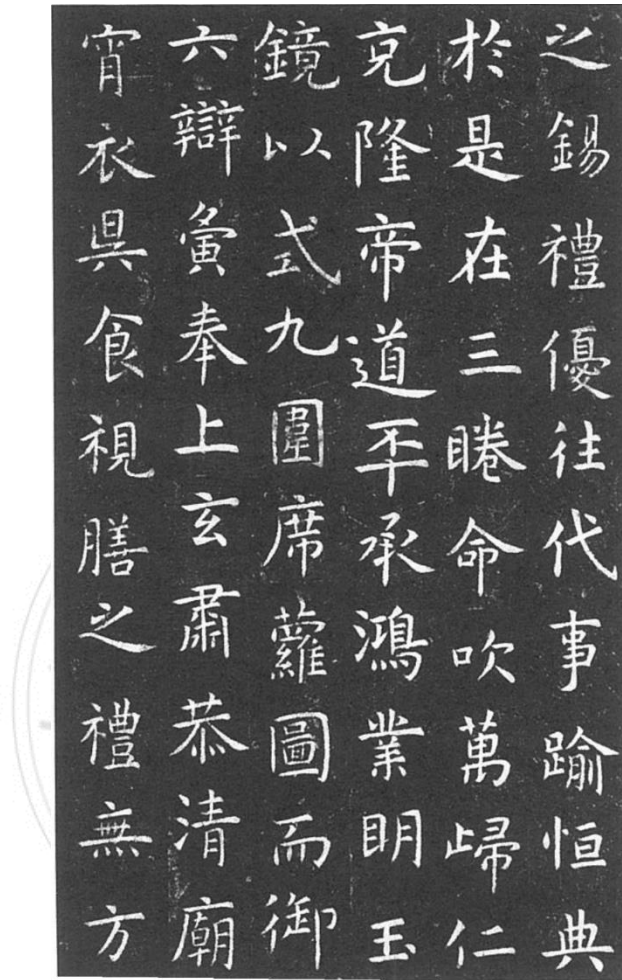 之錫禮優往代事踰恒典
於是在三眷命吹萬歸仁
克隆帝道丕承鴻業明玉
鏡以式九圍席蘿圖而御
六辯寅奉上玄肅恭清廟
宵衣昃食視膳之禮無方